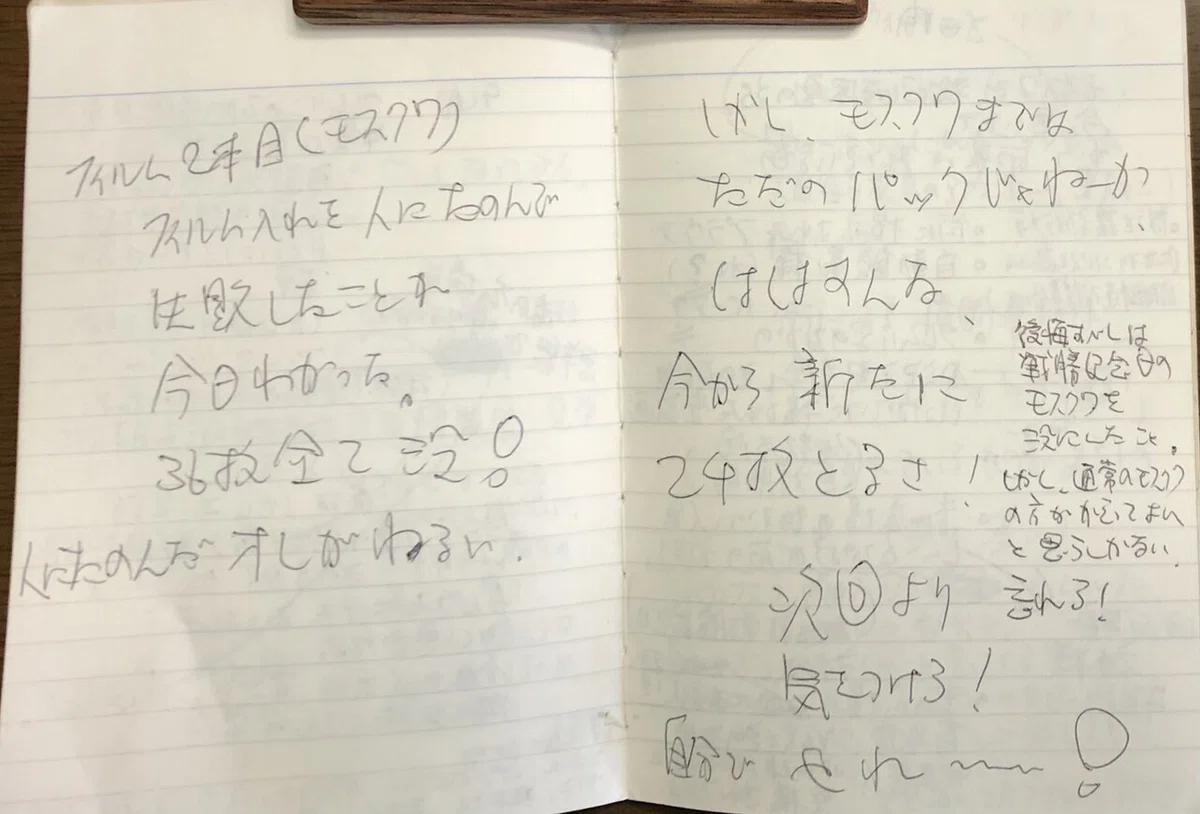 フィルム2本目(モスクワ)
フィルム入れを人にたのんで
失敗したことが
今日わかった。
36枚全て没!
人にたのんだオレがわるい.
しかし、モスクワまでは
ただのパックじゃねーか、
はしはすんな、
今から新たに
24枚とるさ!
次回より
気をつけろ!
自分でやれ〜〜!
後悔すべしは
戦勝記念日の
モスクワを
没にしたこと。
しかし、通常のモスクワ
の方がかえってよい
と思うしかない
忘れろ!